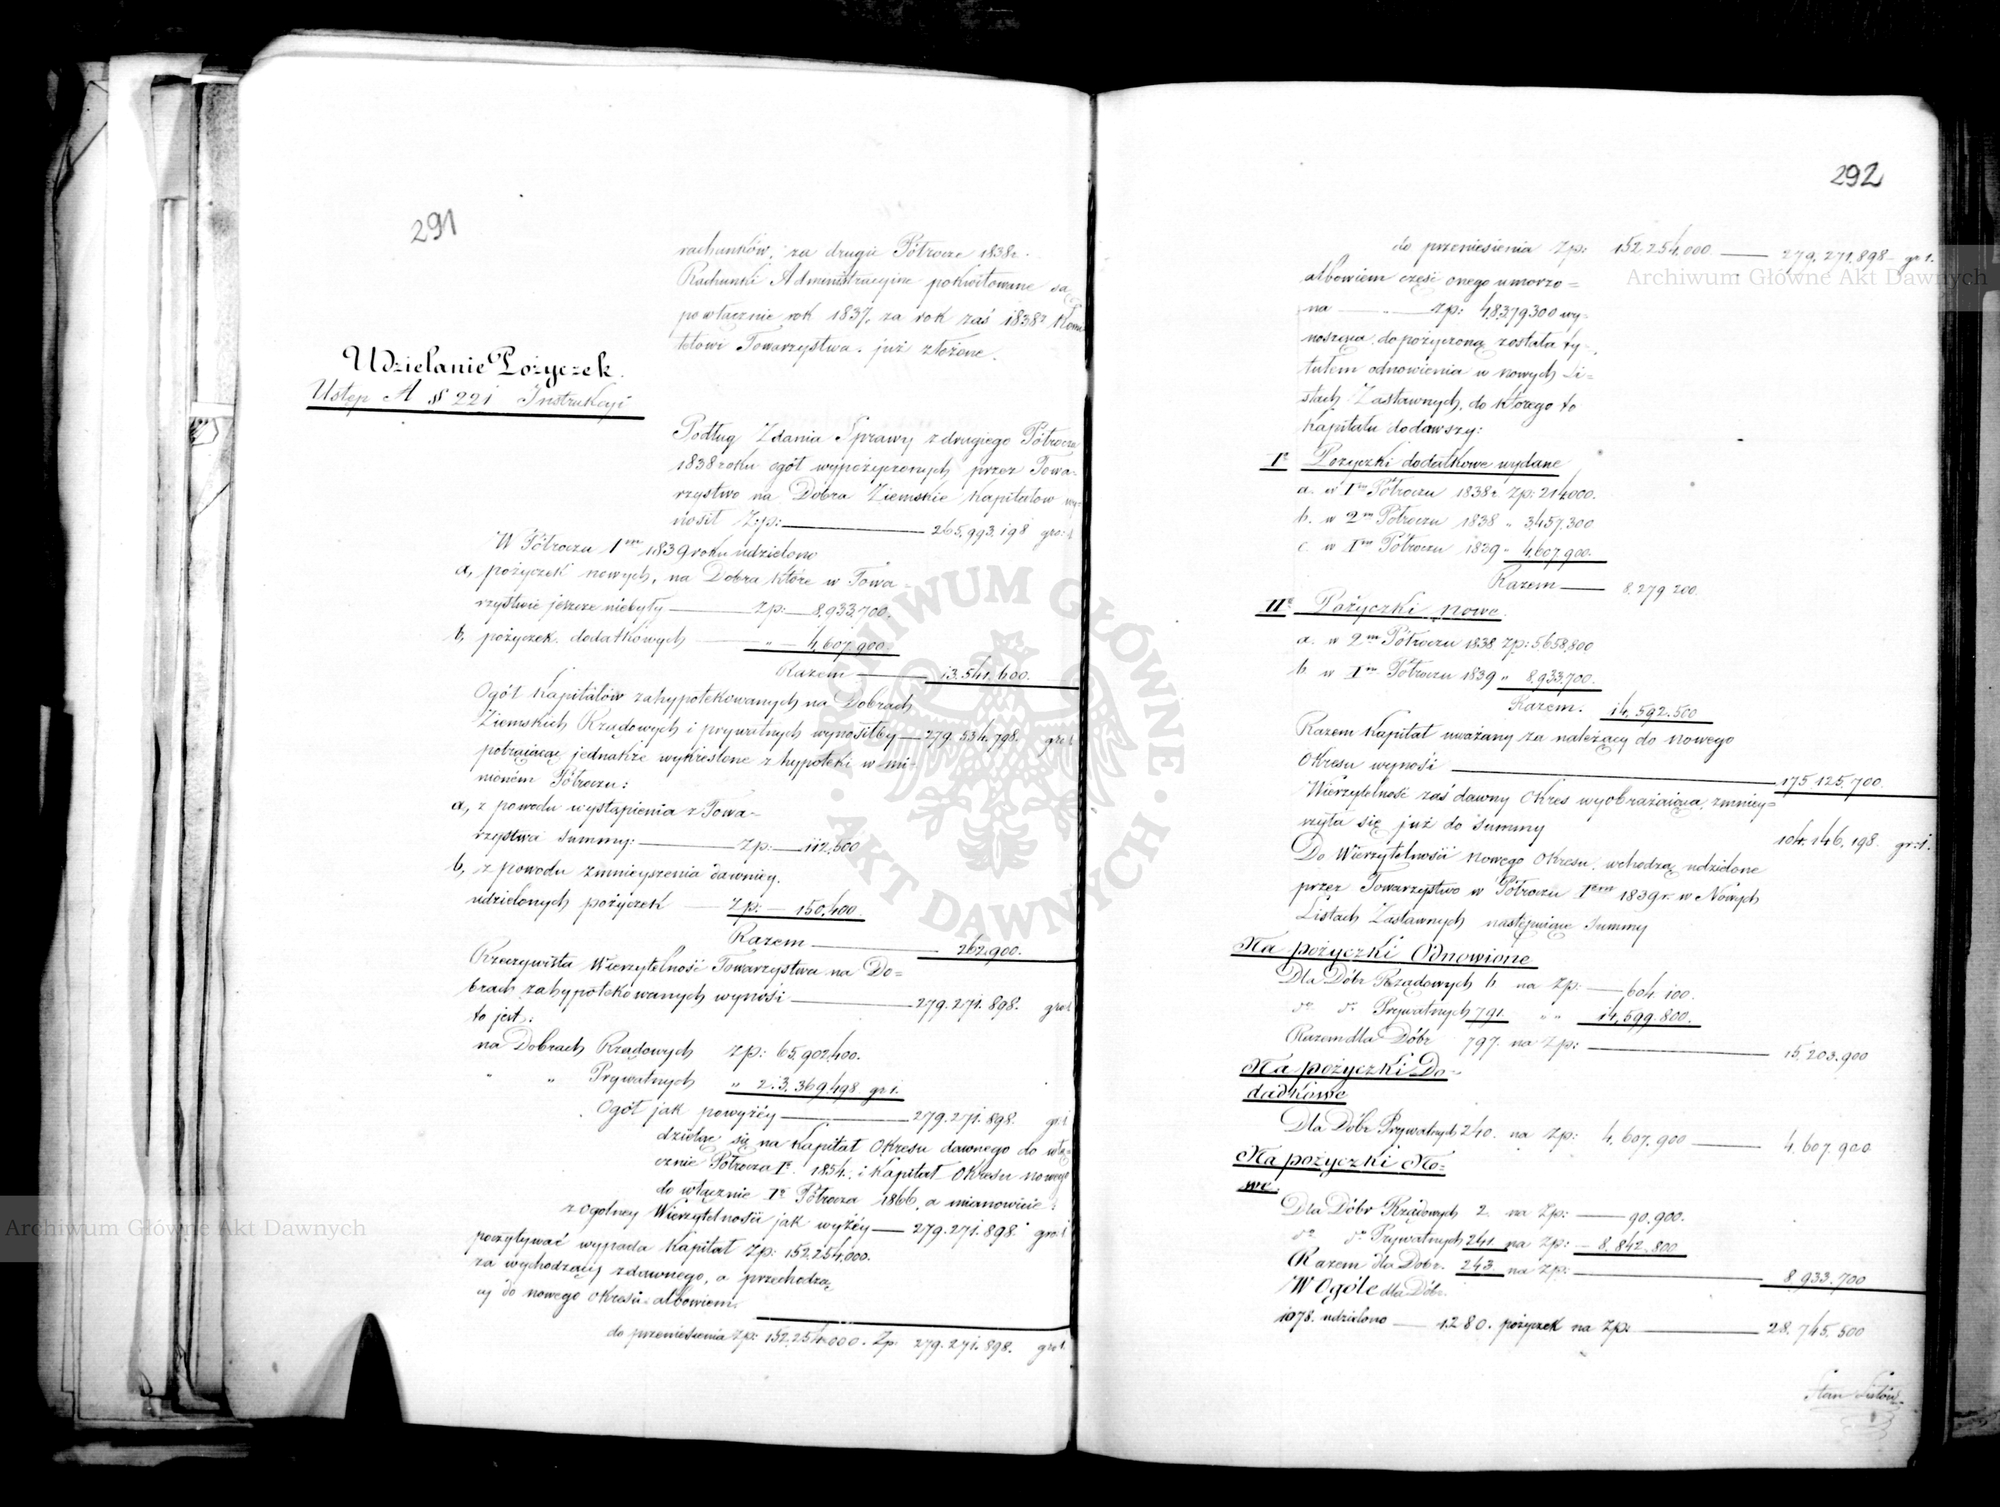 291
rachunków, za drugie Półrocze 1838r.
Rachunki Administracyjne pokwitowane są
powłącznie rok 1837. za rok zaś 1838r Komi
tetowi Towarzystwa już złożone.
Udzielanie Pożyczek.
Ustęp A § 221 Instrukcyi
Podług Zdania Sprawy z drugiego Półrocza
1838 roku ogół wypożyczonych przez Towa-
rzystwo na Dobra Ziemskie Kapitałów wy-
nosił Zp: 265,993,198 gro: 1
W Półroczu 1m 1839 roku udzielono
a, pożyczek nowych, na Dobra które w Towa-
rzystwie jeszcze niebyły Zp: 8,933,700.
b, pożyczek dodatkowych " 4,607,900
Razem 13,541,600.
Ogół Kapitałów zahypotekowanych na Dobrach
Ziemskich Rządowych i prywatnych wynosiłby 279.534.798. gro 1
potrącając jednakże wykreślone z hypoteki w mi-
nionem Półroczu:
a, z powodu wystąpienia z Towa-
rzystwa Summy: Zp: 112,500
b, z powodu zmnieyszenia dawniey.
udzielonych pożyczek Zp: 150,400
Razem 262,900.
Rzeczywista Wierzytelność Towarzystwa na Do-
brach zahypotekowanych wynosi 279.271.898. gro 1
to jest:
na Dobrach Rządowych Zp: 65,902,400.
" " Prywatnych " 213.369.498 gr 1.
Ogół jak powyżéy 279.271.898. gr: 1
dzieląc się na Kapitał Okresu dawnego do włą-
cznie Półrocza Io 1854. i Kapitał Okresu nowego
do włącznie Io Półrocza 1866, a mianowicie:
z ogolney Wierzytelności jak wyżéy 279.271.898 gro: 1
poczytywać wypada Kapitał Zp: 152.254.000.
za wychodzący z dawnego, a przechodzą
cy do nowego okresu albowiem.
do przeniesienia Zp: 152,254.000. Zp: 279.271.898. gro 1.
292
do przeniesienia Zp: 152.254.000. 279,271,898 gr 1.
albowiem część onego umorzo=
na Zp: 48379300 wy-
nosząca, dopożyczoną została ty-
tułem odnowienia w nowych Li-
stach Zastawnych, do którego to
Kapitału dodawszy:
Io Pożyczki dodatkowe wydane
a. w Im Półroczu 1838r. Zp: 214000.
b. w 2m Półroczu 1838 " 3,457,300
c. w Im Półroczu 1839 " 4,607,900.
Razem 8,279 200.
IIo Pożyczki nowe.
a. w 2m Półroczu 1838 Zp: 5,658,800
b. w Im Półroczu 1839 " 8,933,700.
Razem. 14,592,500
Razem Kapitał uważany za należący do nowego
Okresu wynosi 175 125,700.
Wierzytelność zaś dawny Okres wyobrażaiąca, zmniey-
szyła się już do Summy 104.146,198. gr: 1.
Do Wierzytelności nowego Okresu, wchodzą udzielone
przez Towarzystwo w Półroczu 1839 r. w Nowych
Listach Zastawnych następujące Summy
Na pożyczki Odnowione
Dla Dóbr Rządowych 6 na Zp: 604.100.
do do Prywatnych 791. " " 14,599.800.
Razem dla Dóbr 797. na Zp: 15,203,900
Na pożyczki Do-
datkowe
Dla Dóbr Prywatnych 240. na Zp: 4,607,900 4,607,900
Na pożyczki No-
we.
Dla Dóbr Rządowych 2 na Zp: 90,900.
do do Prywatnych 241 na Zp: 8.842.800
Razem dla Dóbr. 243 na Zp: 8,933,700
W Ogóle dla Dóbr.
1078. udzielono 1280. pożyczek na Zp: 28,745,500
Stan Listów
Archiwum Główne Akt Dawnych
Archiwum Główne Akt Dawnych
ARCHIWUM GŁÓWNE · AKT DAWNYCH ·